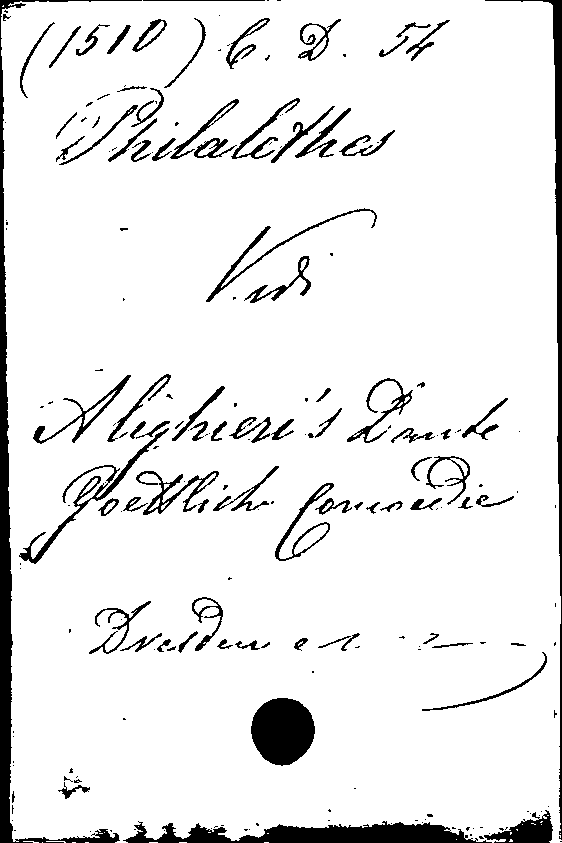 (1510) C. D. 54
Philalethes
Vidi
Alighieri's Dante
Goettliche Comoedie
Dresden